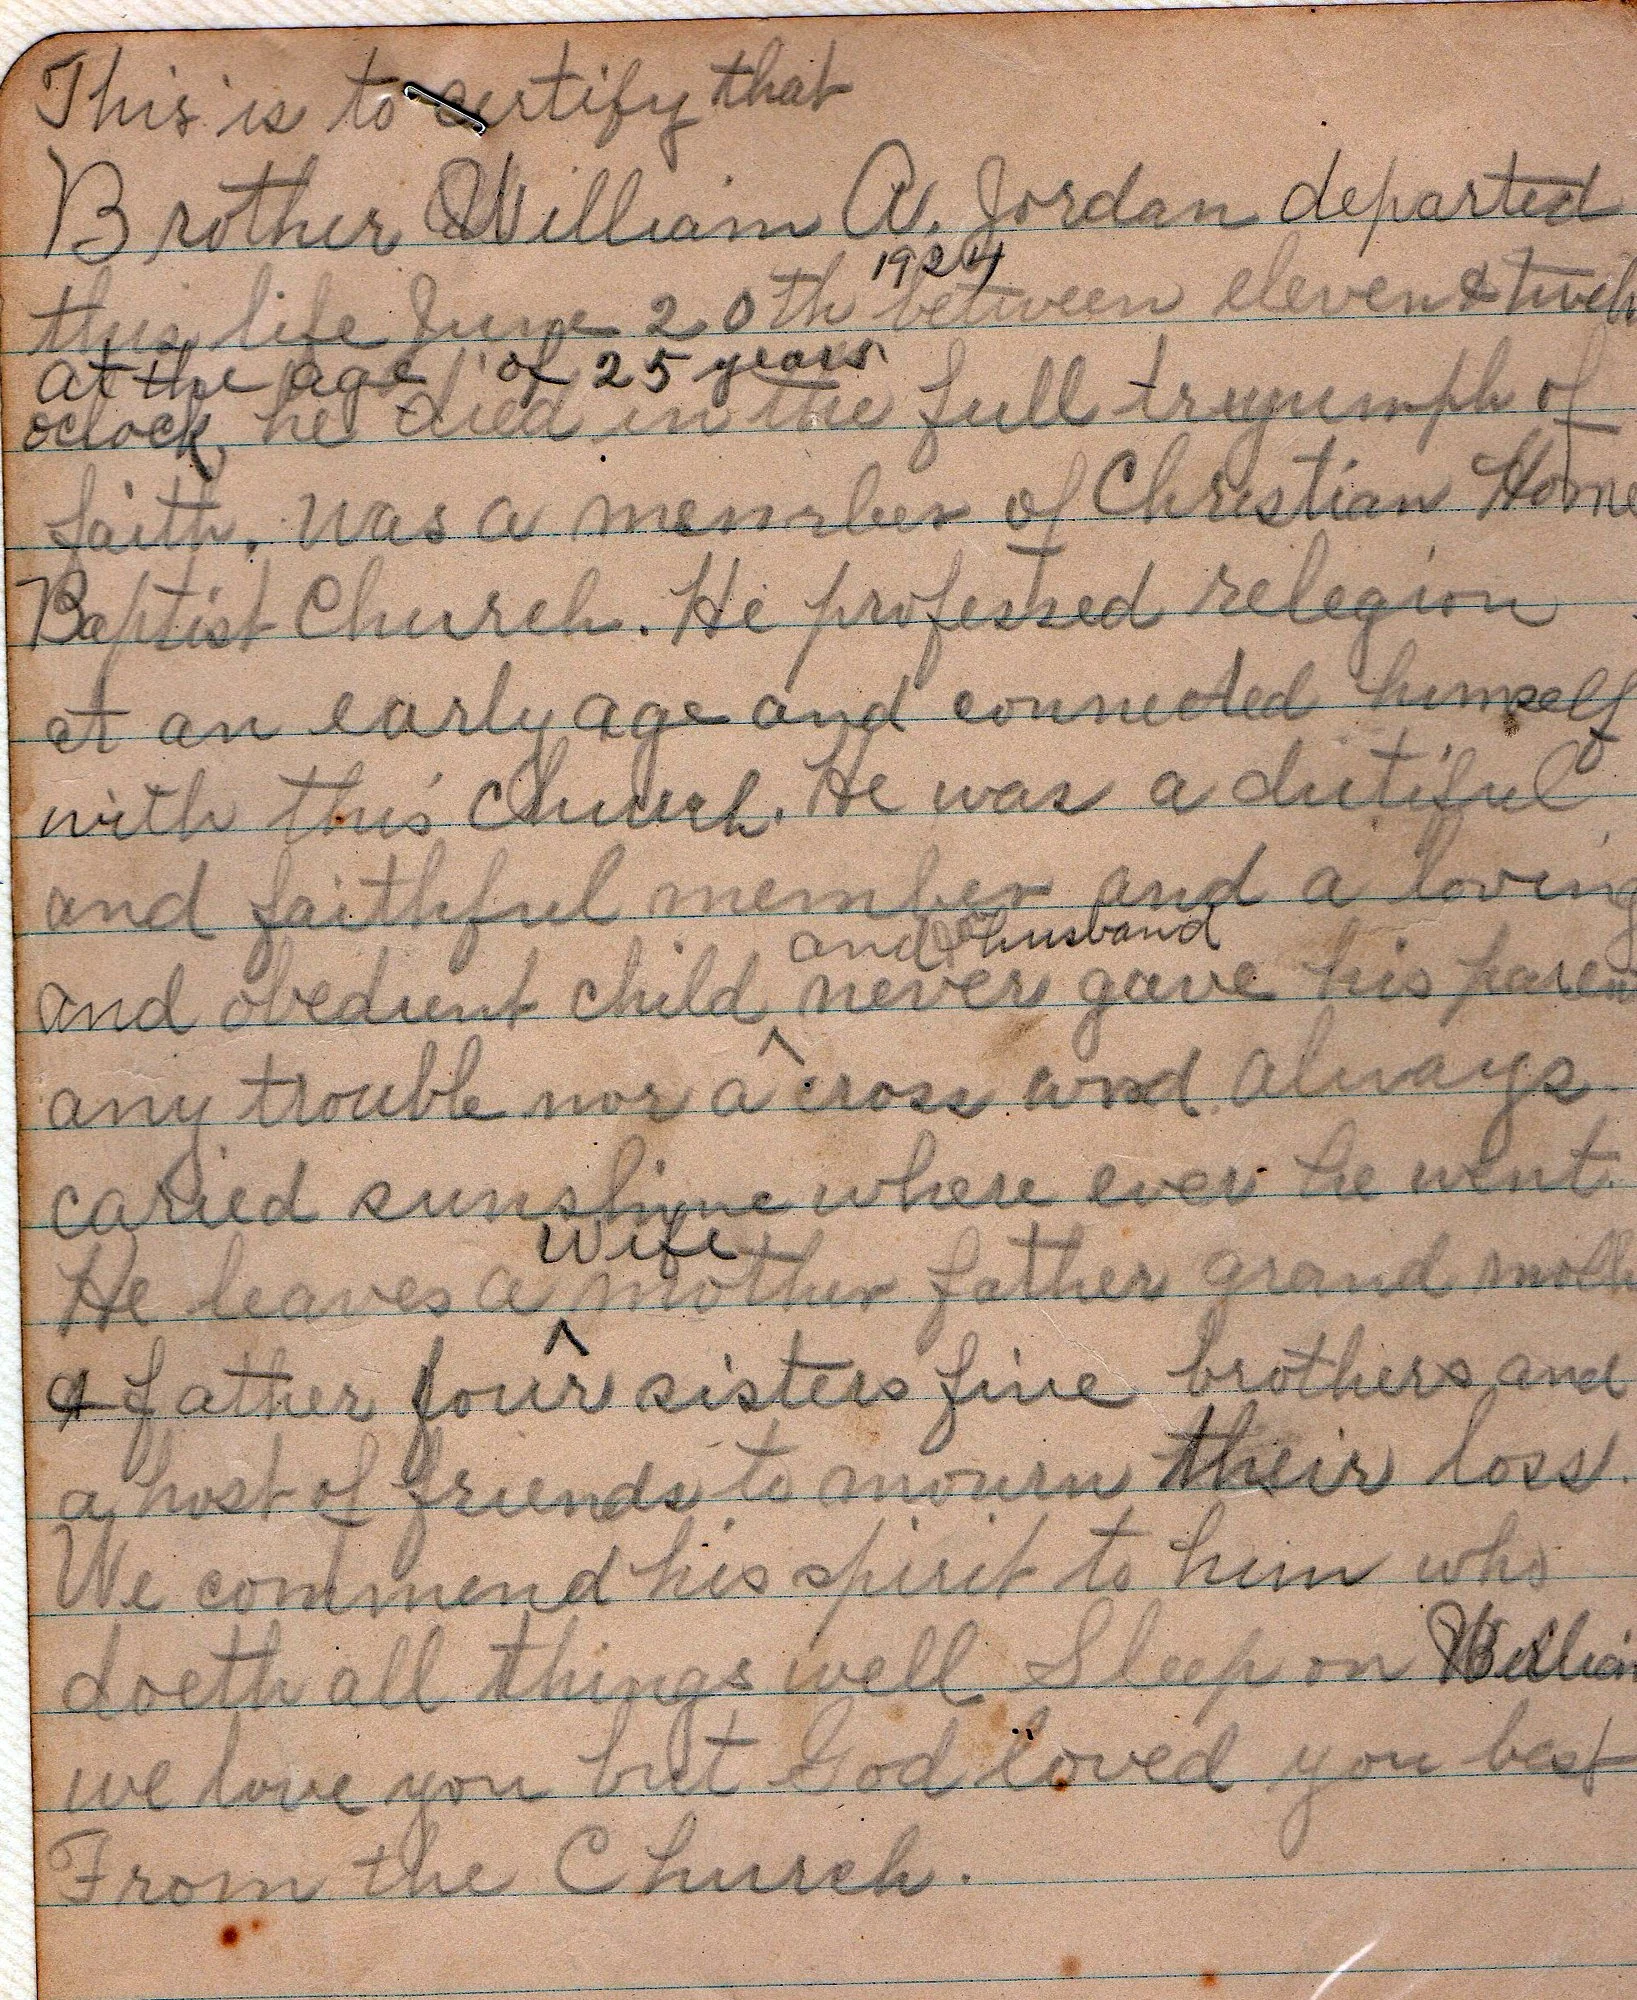 This is to certify that
Brother William A. Jordan departed
1924
this life June 20th between eleven & twelv
at the age of 25 years
oclock he died in the full tryumph of
faith. was a member of Christian Home
Baptist Church. He professed relegion
at an early age and connected himself
with this church. He was a dutiful
and faithful member and a loving
and husband
and obedient child never gave his paren
any trouble nor a cross word always
caried sunshine where ever he went.
Wife
He leaves a mother father grand moth
& father four sisters five brothers and
a host of friends to mourn their loss.
We commend his spirit to him who
doeth all things well Sleep on William
we love you but God loved you best
From the Church.